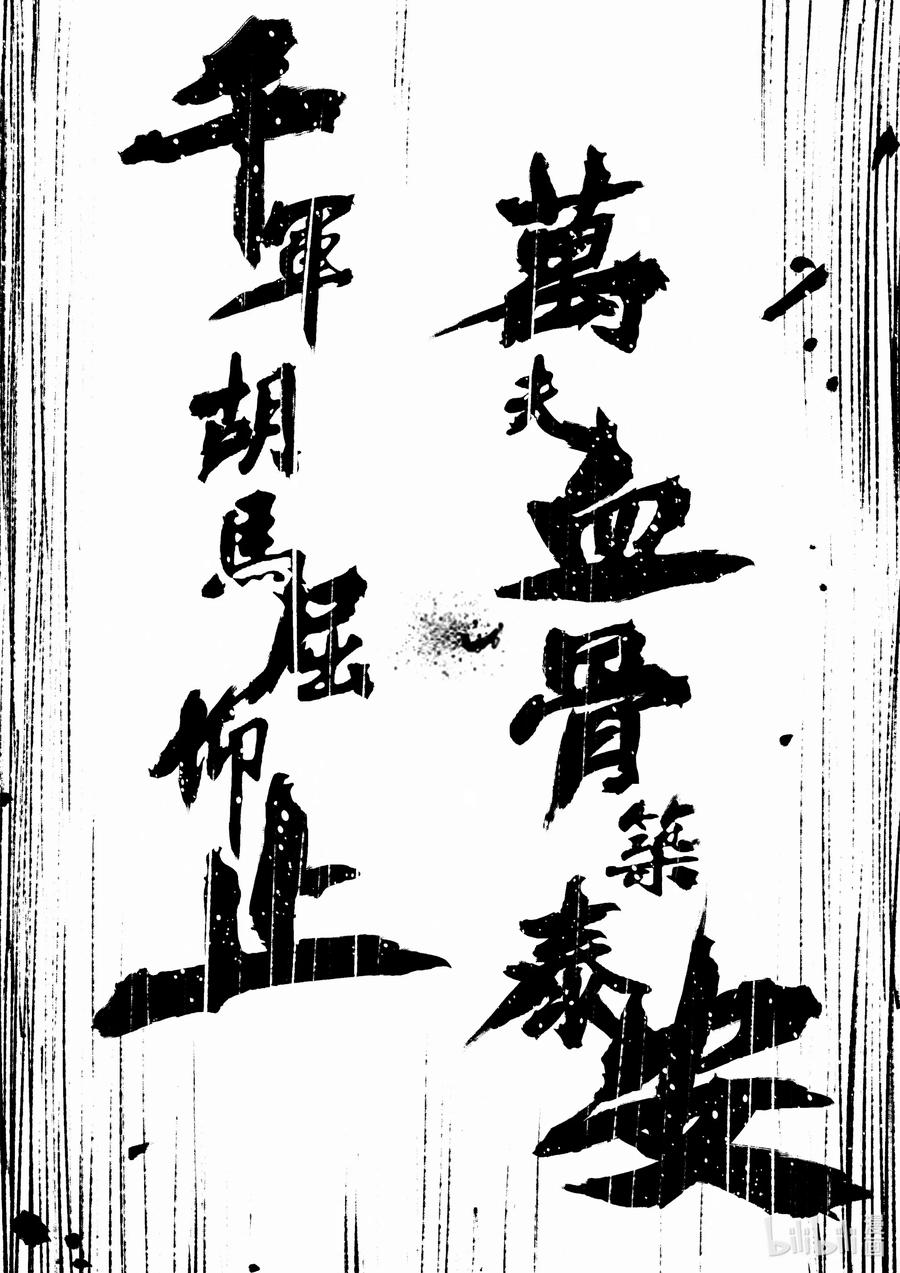 萬夫血骨築泰安
千軍胡馬屈仰止
bilibili漫画